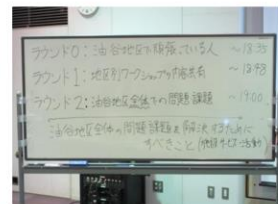 ラウンド0：油谷地区で頑張っている人 ～18:35
ラウンド1：地区別ワークショップの内容共有 ～18:48
ラウンド2：油谷地区全体での問題課題 ～19:00
油谷地区全体の問題課題を解決するために
すべきこと